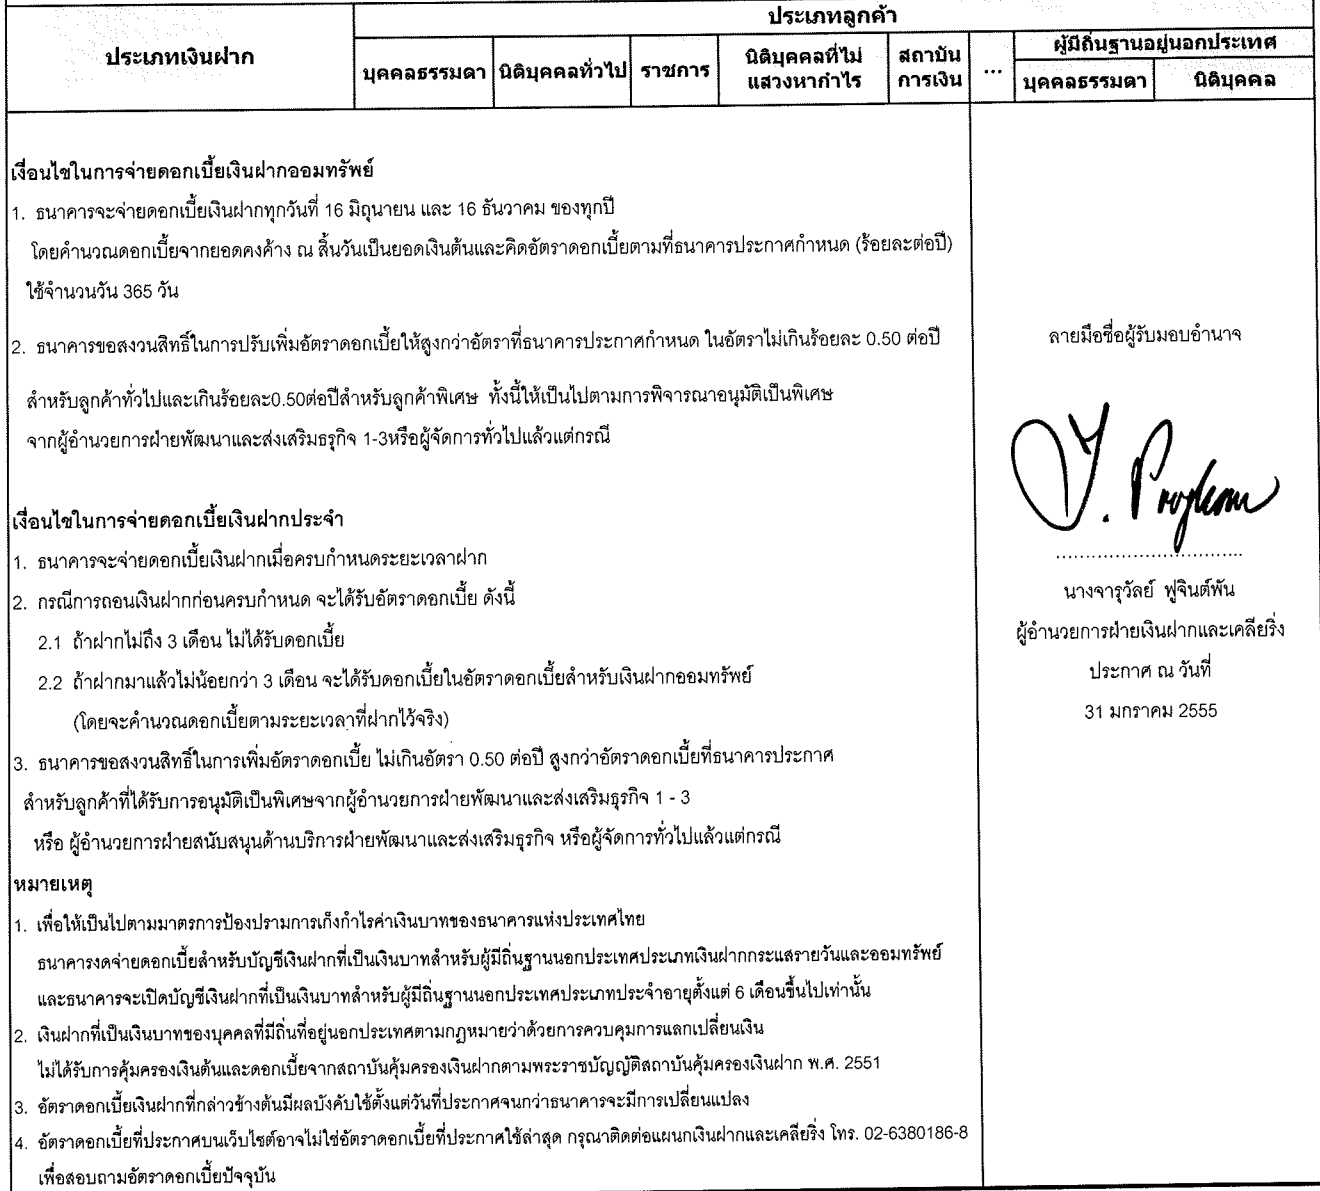 ประเภทลูกค้า
ประเภทเงินฝาก
บุคคลธรรมดา
นิติบุคคลทั่วไป
ราชการ
นิติบุคคลที่ไม่
แสวงหากำไร
สถาบัน
การเงิน
...
ผู้มีถิ่นฐานอยู่นอกประเทศ
บุคคลธรรมดา
นิติบุคคล
เงื่อนไขในการจ่ายดอกเบี้ยเงินฝากออมทรัพย์
1. ธนาคารจะจ่ายดอกเบี้ยเงินฝากทุกวันที่ 16 มิถุนายน และ 16 ธันวาคม ของทุกปี
โดยคำนวณดอกเบี้ยจากยอดคงค้าง ณ สิ้นวันเป็นยอดเงินต้นและคิดอัตราดอกเบี้ยตามที่ธนาคารประกาศกำหนด (ร้อยละต่อปี)
ใช้จำนวนวัน 365 วัน
2. ธนาคารขอสงวนสิทธิ์ในการปรับเพิ่มอัตราดอกเบี้ยให้สูงกว่าอัตราที่ธนาคารประกาศกำหนด ในอัตราไม่เกินร้อยละ 0.50 ต่อปี
สำหรับลูกค้าทั่วไปและเกินร้อยละ0.50ต่อปีสำหรับลูกค้าพิเศษ ทั้งนี้ให้เป็นไปตามการพิจารณาอนุมัติเป็นพิเศษ
จากผู้อำนวยการฝ่ายพัฒนาและส่งเสริมธุรกิจ 1-3หรือผู้จัดการทั่วไปแล้วแต่กรณี
เงื่อนไขในการจ่ายดอกเบี้ยเงินฝากประจำ
1. ธนาคารจะจ่ายดอกเบี้ยเงินฝากเมื่อครบกำหนดระยะเวลาฝาก
2. กรณีการถอนเงินฝากก่อนครบกำหนด จะได้รับอัตราดอกเบี้ย ดังนี้
2.1 ถ้าฝากไม่ถึง 3 เดือน ไม่ได้รับดอกเบี้ย
2.2 ถ้าฝากมาแล้วไม่น้อยกว่า 3 เดือน จะได้รับดอกเบี้ยในอัตราดอกเบี้ยสำหรับเงินฝากออมทรัพย์
(โดยจะคำนวณดอกเบี้ยตามระยะเวลาที่ฝากไว้จริง)
3. ธนาคารขอสงวนสิทธิ์ในการเพิ่มอัตราดอกเบี้ย ไม่เกินอัตรา 0.50 ต่อปี สูงกว่าอัตราดอกเบี้ยที่ธนาคารประกาศ
สำหรับลูกค้าที่ได้รับการอนุมัติเป็นพิเศษจากผู้อำนวยการฝ่ายพัฒนาและส่งเสริมธุรกิจ 1 - 3
หรือ ผู้อำนวยการฝ่ายสนับสนุนด้านบริการฝ่ายพัฒนาและส่งเสริมธุรกิจ หรือผู้จัดการทั่วไปแล้วแต่กรณี
หมายเหตุ
1. เพื่อให้เป็นไปตามมาตรการป้องปรามการเก็งกำไรค่าเงินบาทของธนาคารแห่งประเทศไทย
ธนาคารงดจ่ายดอกเบี้ยสำหรับบัญชีเงินฝากที่เป็นเงินบาทสำหรับผู้มีถิ่นฐานนอกประเทศประเภทเงินฝากกระแสรายวันและออมทรัพย์
และธนาคารจะเปิดบัญชีเงินฝากที่เป็นเงินบาทสำหรับผู้มีถิ่นฐานนอกประเทศประเภทประจำอายุตั้งแต่ 6 เดือนขึ้นไปเท่านั้น
2. เงินฝากที่เป็นเงินบาทของบุคคลที่มีถิ่นที่อยู่นอกประเทศตามกฎหมายว่าด้วยการควบคุมการแลกเปลี่ยนเงิน
ไม่ได้รับการคุ้มครองเงินต้นและดอกเบี้ยจากสถาบันคุ้มครองเงินฝากตามพระราชบัญญัติสถาบันคุ้มครองเงินฝาก พ.ศ. 2551
3. อัตราดอกเบี้ยเงินฝากที่กล่าวข้างต้นมีผลบังคับใช้ตั้งแต่วันที่ประกาศจนกว่าธนาคารจะมีการเปลี่ยนแปลง
4. อัตราดอกเบี้ยที่ประกาศบนเว็บไซต์อาจไม่ใช่อัตราดอกเบี้ยที่ประกาศใช้ล่าสุด กรุณาติดต่อแผนกเงินฝากและเคลียริ่ง โทร. 02-6380186-8
เพื่อสอบถามอัตราดอกเบี้ยปัจจุบัน
ลายมือชื่อผู้รับมอบอำนาจ
นางจารุวัลย์ ฟูจินต์พัน
ผู้อำนวยการฝ่ายเงินฝากและเคลียริ่ง
ประกาศ ณ วันที่
31 มกราคม 2555